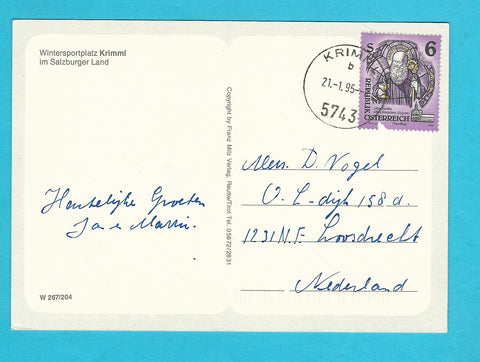 Wintersportplatz Krimml
im Salzburger Land
KRIMML
b
21.-1.95-
5743
S 6
REPUBLIK
ÖSTERREICH
Copyright by Franz Milz Verlag, Reutte/Tirol Tel. 05672/2631
Hartelijke Groeten
Jan & Martin.
Mevr. D. Vogel
O. L-dijk 158 d.
1231 N.F. Loosdrecht
Nederland
W 267/204